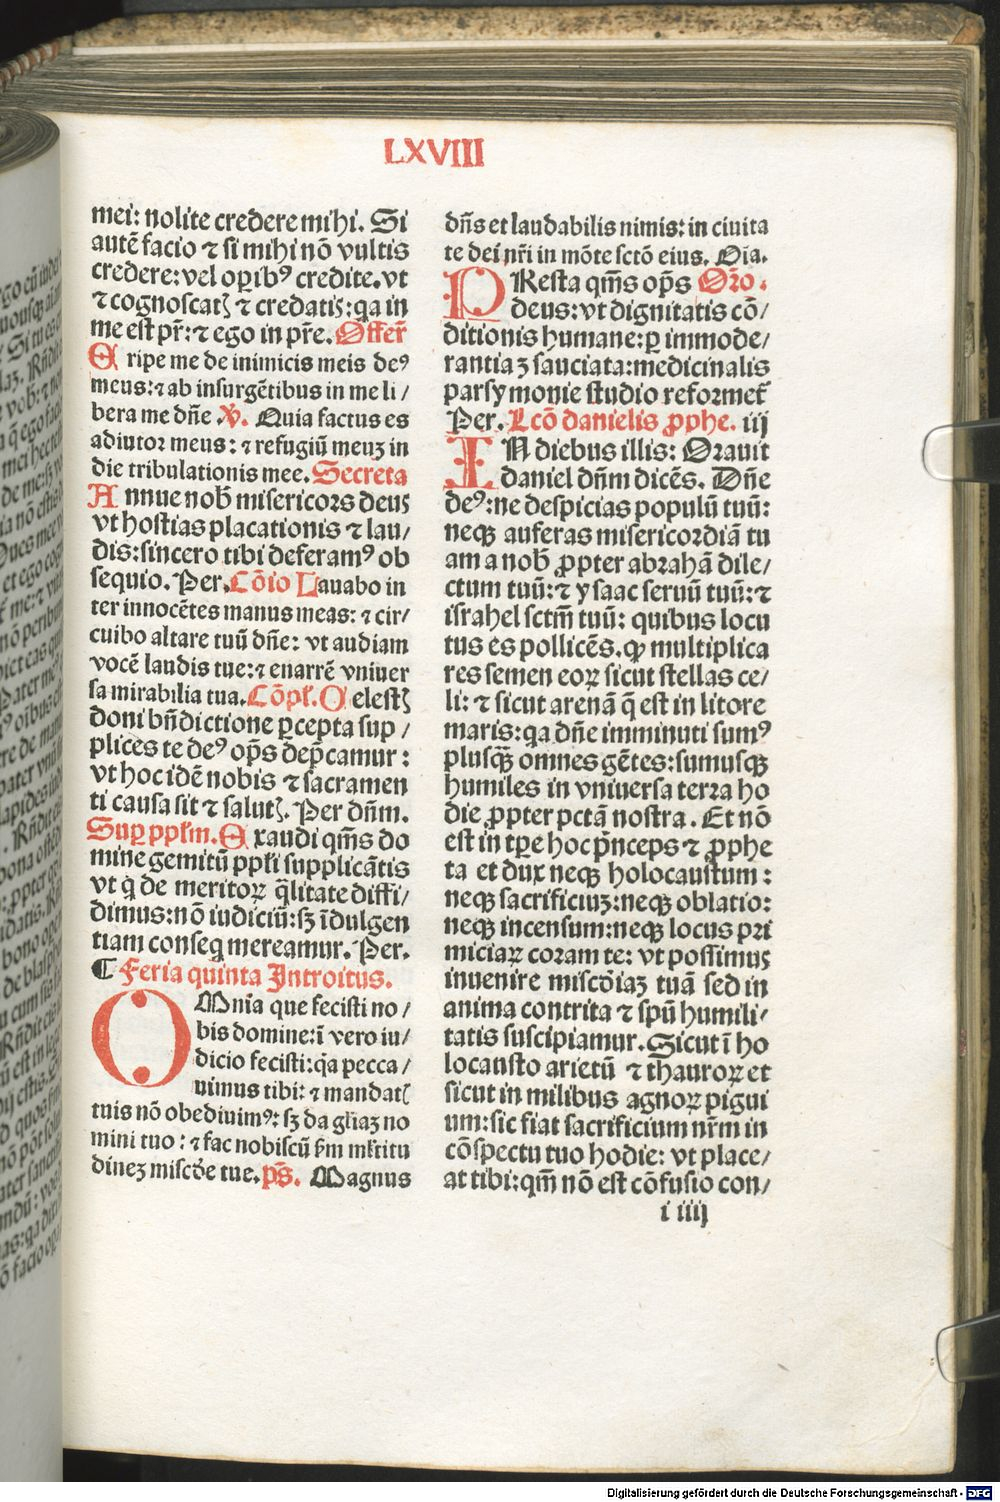 LXVIII
mei: nolite credere mihi. Si
autē facio ⁊ si mihi nō vultis
credere: vel oꝑibꝰ credite. vt
⁊ cognoscatꝭ ⁊ credatꝭ: qa in
me est pr̄: ⁊ ego in pr̄e. Offer̄
Eripe me de inimicis meis deꝰ
meus: ⁊ ab insurgētibus in me li/
bera me dn̄e ꝟ. Quia factus es
adiutor meus: ⁊ refugiū meuꝫ in
die tribulationis mee. Secreta
Annue nob̄ misericors deus
vt hostias placationis ⁊ lau/
dis: sincero tibi deferamꝰ ob
sequio. Per. Cōio Lauabo in
ter innocētes manus meas: ⁊ cir/
cuibo altare tuū dn̄e: vt audiam
vocē laudis tue: ⁊ enarrē vniuer
sa mirabilia tua. Cōpl. Celestꝭ
doni bn̄dictione ꝑcepta sup/
plices te deꝰ op̄s dep̄camur:
vt hoc idē nobis ⁊ sacramen
ti causa sit ⁊ salutꝭ. Per dn̄m.
Suꝑ ppl̄m. Exaudi qm̄s do
mine gemitū ppl̄i supplicātis
vt q̄ de meritoꝝ q̄litate diffi/
dimus: nō iudiciū: sꝫ īdulgen
tiam conseq mereamur. Per.
¶ Feria quinta Introitus.
OMnia que fecisti no/
bis domine: ī vero iu/
dicio fecisti: qa pecca/
uimus tibi: ⁊ mandatꝭ
tuis nō obediuimꝰ: sꝫ da gl̄iaꝫ no
mini tuo: ⁊ fac nobiscū ẜm ml̄titu
dineꝫ miscd̄e tue. ps̄. Magnus
dn̄s et laudabilis nimis: in ciuita
te dei nr̄i in mōte sctō eius. Oīa.
PResta qm̄s op̄s Oro.
deus: vt dignitatis cō/
ditionis humane: ꝑ immode/
rantiaꝫ sauciata: medicinalis
parsymonie studio reformet̄
Per. Lcō danielis ꝓphe. iij
IN diebus illis: Orauit
daniel dn̄m dicēs. Dn̄e
deꝰ: ne despicias populū tuū:
neqꝫ auferas misericordiā tu
am a nob̄ ꝓpter abrahā dile/
ctum tuū: ⁊ ysaac seruū tuū: ⁊
israhel sctm̄ tuū: quibus locu
tus es pollicēs. ꝙ multiplica
res semen eoꝝ sicut stellas ce/
li: ⁊ sicut arenā q̄ est in litore
maris: qa dn̄e imminuti sumꝰ
plusqꝫ omnes gētes: sumusqꝫ
humiles in vniuersa terra ho
die ꝓpter pctā nostra. Et nō
est in tꝑe hoc p̄nceps ⁊ ꝓphe
ta et dux neqꝫ holocaustum:
neqꝫ sacrificiuꝫ: neqꝫ oblatio:
neqꝫ incensum: neqꝫ locus pri
miciaꝝ coram te: vt possimus
inuenire miscōiaꝫ tuā sed in
anima contrita ⁊ spū humili/
tatis suscipiamur. Sicut ī ho
locausto arietū ⁊ thauroꝝ et
sicut in milibus agnoꝝ pigui
um: sic fiat sacrificium nr̄m in
cōspectu tuo hodie: vt place/
at tibi: qm̄ nō est cōfusio con/
i iiij
Digitalisierung gefördert durch die Deutsche Forschungsgemeinschaft - DFG